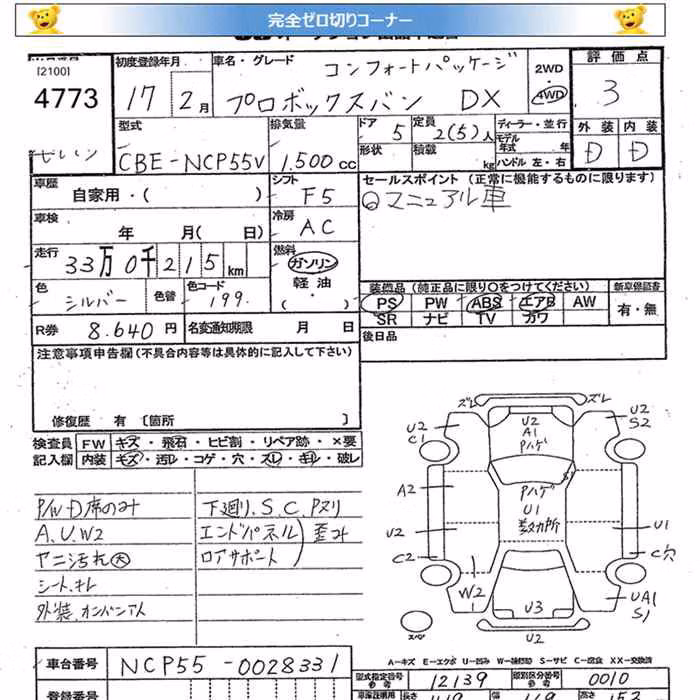 完全ゼロ切りコーナー
[2100]
4773
初度登録年月
17 2月
車名・グレード
コンフォートパッケージ
プロボックスバン DX
2WD
・
4WD
評価点
3
外装 内装
D D
型式
CBE-NCP55V
排気量
1.500 cc
ドア
5
定員
2(5)人
ディーラー・並行
モデル年式 年
形状
積載 kg
ハンドル 左・右
車歴
自家用・( )
シフト
F5
セールスポイント (正常に機能するものに限ります)
◎マニュアル車
車検
年 月( 日)
冷房
AC
走行
33万0千215km
燃料
ガソリン
軽油
・( )
色
シルバー
色替
色コード
199
装備品 (純正品に限り○をつけてください)
新車保証書
PS PW ABS エアB AW
有・無
SR ナビ TV カワ
R券 8.640円
名変通知期限 月 日
後日品
注意事項申告欄 (不具合内容等は具体的に記入して下さい)
修復歴 有 〔箇所 〕
検査員 FW キズ・飛石・ヒビ割・リペア跡・×要
記入欄 内装 キズ・汚レ・コゲ・穴・スレ・キレ・破レ
P/W D席のみ
A.U.W2
ヤニ汚れ大
シートキレ
下廻り.S.C.Pヌリ
エンドパネル
ロアサポート
歪み
ズレ ズレ
U2
C1
U2
A1
Pハゲ
U2
S2
A2
Pハゲ
U1
数カ所
S1
U2
U1
C2
C穴
W2
U3
UA1
S1
スペア
U2
A-キズ E-エクボ U-凹み W-補修跡 S-サビ C-腐食 XX-交換済
車台番号
NCP55-0028331
型式指定番号
12139
類別区分番号
0010
登録番号